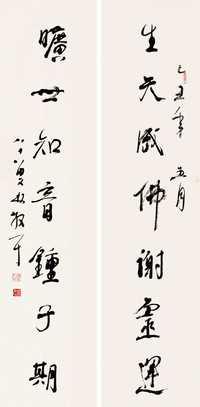 生天成佛謝靈運
乙丑年五月
曠世知音鍾子期
叟林散耳